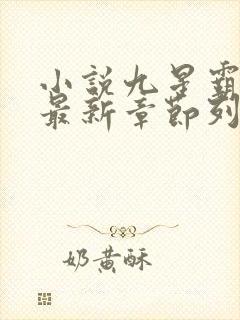 小說九星霸
最新章節列
奶黃酥